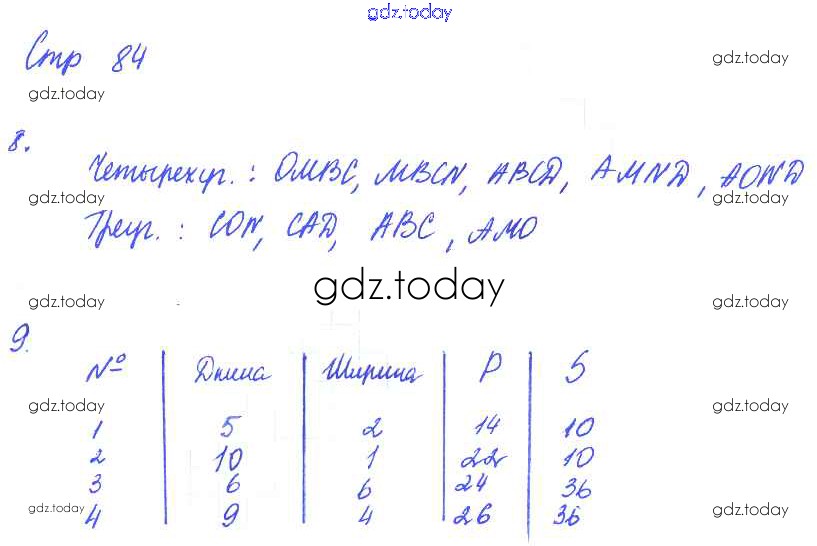 gdz.today
Стр 84
gdz.today
gdz.today
8.
Четырехуг.: OMBC, MBCN, ABCD, AMND, AOND
gdz.today
gdz.today
Треуг.: CON, CAD, ABC, AMO
gdz.today
gdz.today
gdz.today
9.
№ | Длина | Ширина | P | S
gdz.today
gdz.today
1 | 5 | 2 | 14 | 10
2 | 10 | 1 | 22 | 10
3 | 6 | 6 | 24 | 36
4 | 9 | 4 | 26 | 36
gdz.today
gdz.today